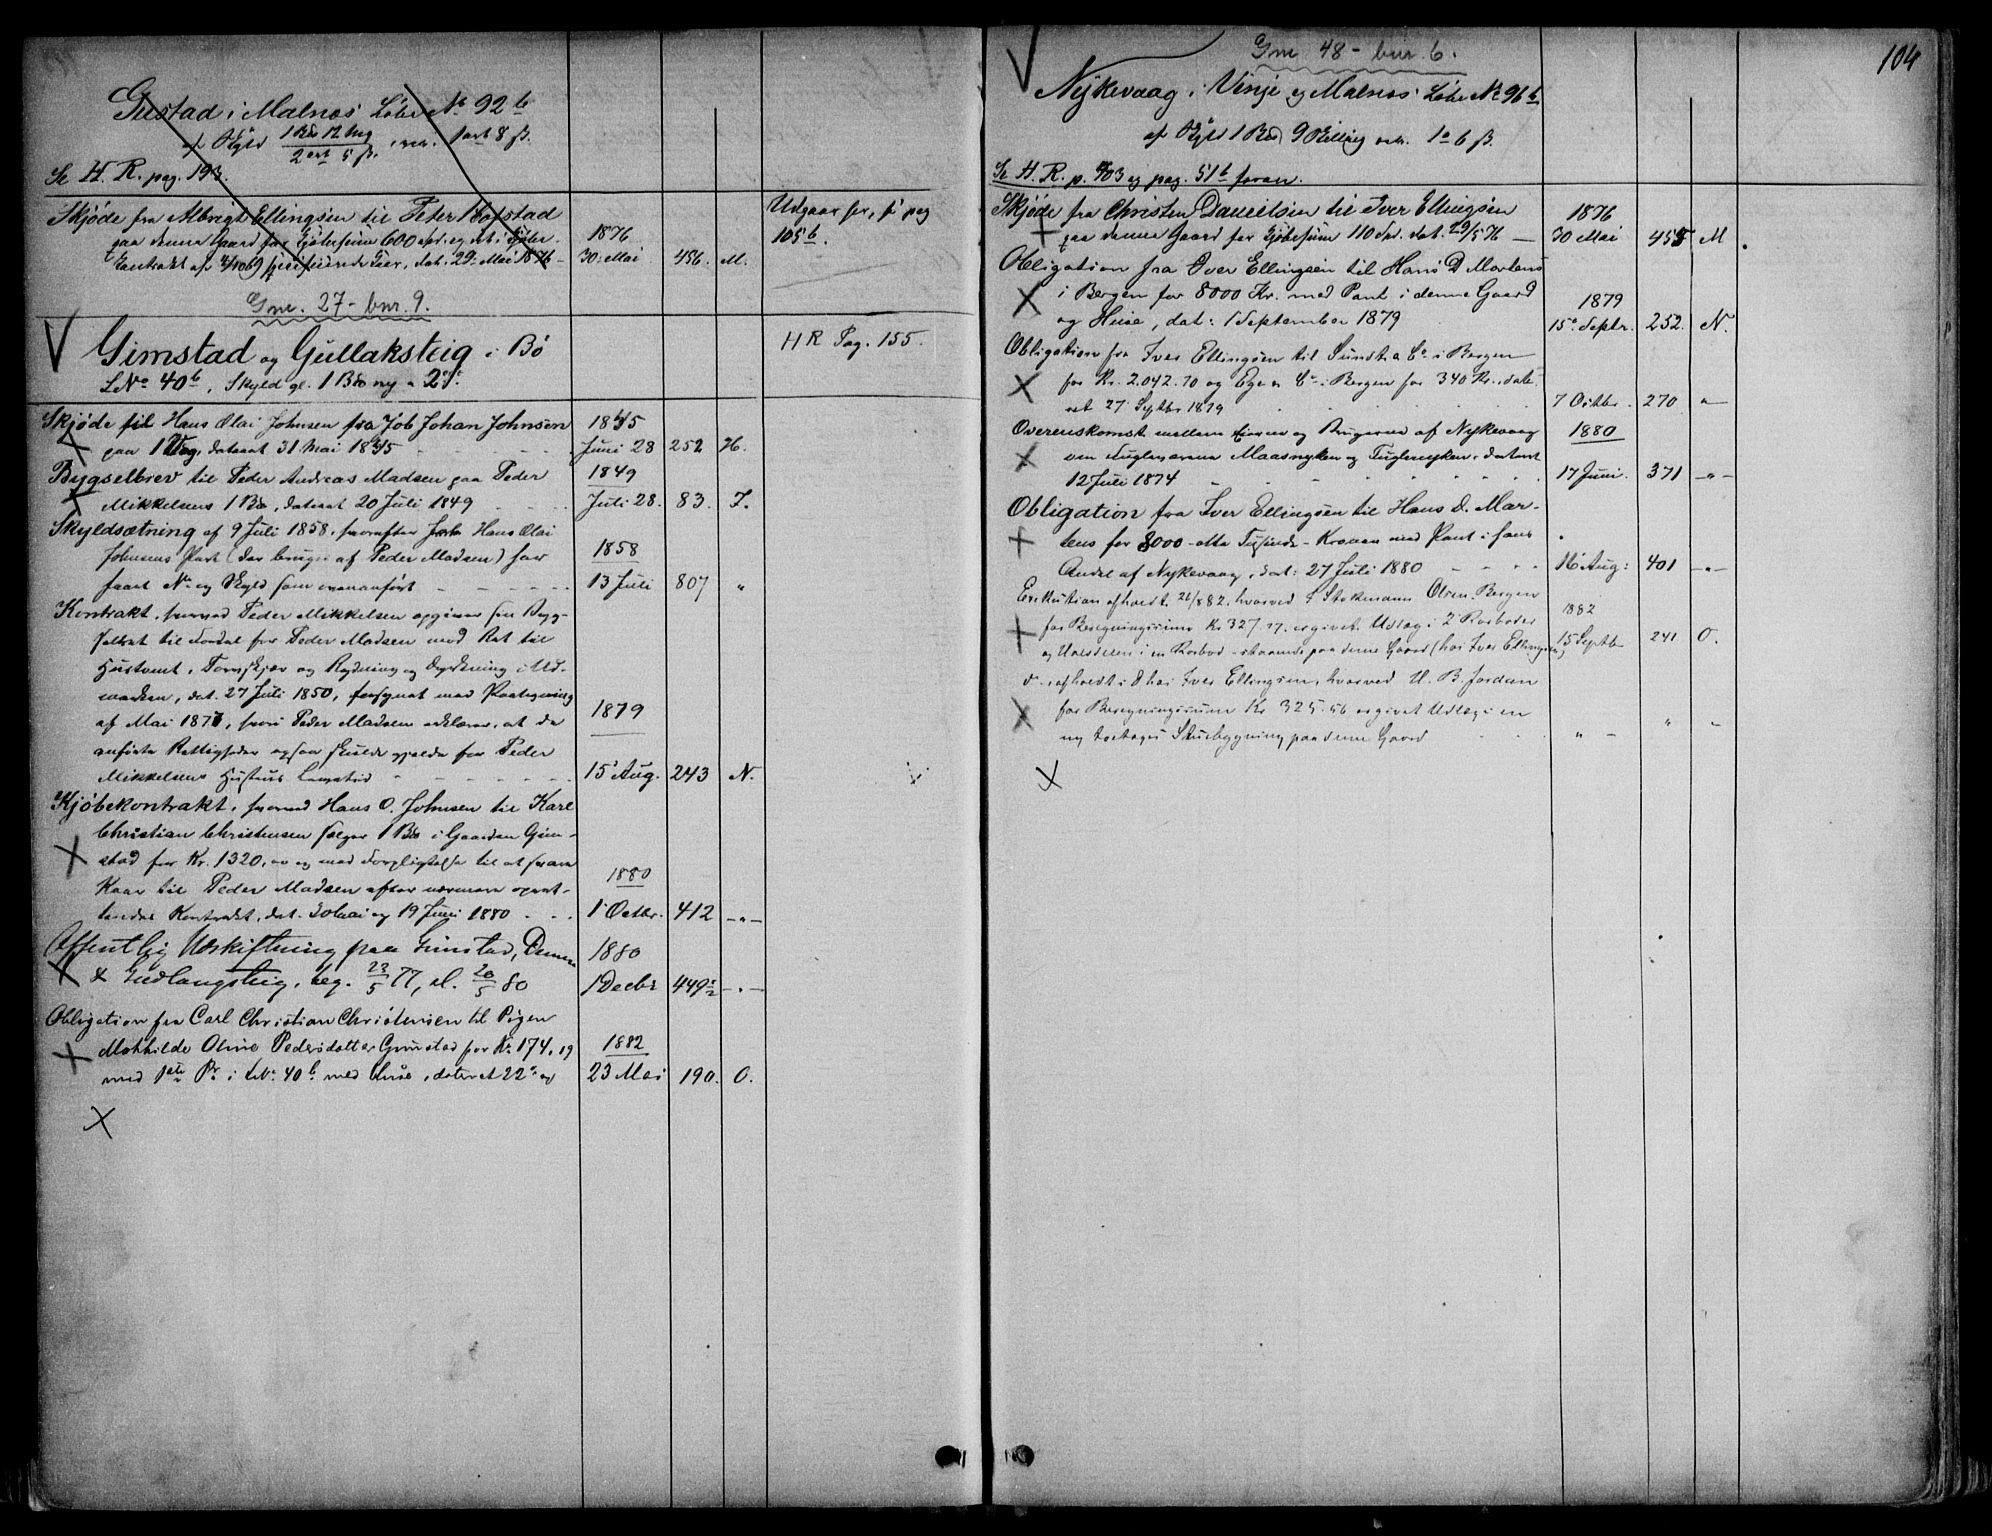 Gustad i Malnæs Løbe No 92 b
af Skyld 1 Bƥ 12 Mƥ / 2 ort 5 ß. 1 ort 8 ß.
Se H. R. pag. 193.
Skjøde fra Albregt Ellingsen til Peter Hofstad
paa denne Gaard for Kjøbesum 600 spd. og det i Kjøbe- 1876
Kontrakt af 4/10 69 specificerede Kaar, dat. 29 Mai 1876 - 30 Mai 456. M.
Udgaar her, se pag
105 b.
Gnr. 27 - bnr. 9.
V Gimstad og Gullaksteig i Bø
LNo 40 b, Skyld gl. 1 Bƥ ny
HR Pag. 155.
Skjøde til Hans Olai Johnsen fra Job Johan Johnsen 1845
paa 1 Vog, dateret 31 Mai 1845 - Juni 28 252 H.
Bygselbrev til Peder Andreas Madsen paa Peder 1849
Mikkelsens 1 Bƥ, dateret 20 Juli 1849 Juli 28. 83. I.
Skyldsætning af 9 Juli 1858, hvorefter Hans Olai
Johnsens Part (der bruges af Peder Madsen) har 1858
faaet No og Skyld som ovenanført - - - 13 Juli 807 "
Kontrakt, hvorved Peder Mikkelsen opgiver sin Byg-
selret til Fordel for Peder Madsen mod Ret til
Husvant, Tornskjær og Rydning og Dyrkning i Ud-
marken, dat. 27 Juli 1850, forsynet med Paategning
af Mai 1871, hvori Peder Madsen erklærer, at de 1879
anførte Rettigheder ogsaa skulde gjælde for Peder
Mikkelsens Hustrus Levetid - - - 15 Aug. 243 N.
Kjøbekontrakt, hvorved Hans O. Johnsen til Karl
Christian Christensen sælger 1 Bƥ i Gaarden Gim-
stad for Kr. 1320, og med Forpligtelse til at svare
Kaar til Peder Madsen efter nærmere opret- 1880
tendes Kontrakt, dat. 30 Mai og 19 Juni 1880 . . . 1 Octbr. 412 -"-
Offentlig Udskiftning paa Gimstad, 1880
& Gullangsteig, beg. 23/5 77, sl. 20/5 80 1 Decbr 449 -"-
Obligation fra Carl Christian Christensen til Pigen
Mathilde Oline Pedersdatter Gimstad for Kr. 174,19 1882
med 1ste Pr. i LNo 40 b med Huse, dateret 22 23 Mai 190. O.
104
V Gnr 48 - bnr. 6.
Nykevaag i Vinje og Malnæs Løbe No 96 b
af Skyld 1 Bƥ 9 Skilling 1 o 6 ß.
Se H. R. p. 403 og pag. 51 b foran.
Skjøde fra Christen Danielsen til Iver Ellingsen 1876
paa denne Gaard for Kjøbesum 110 Spd. dat. 29/5 76 - 30 Mai 455 M.
Obligation fra Iver Ellingsen til Hans D Martens
i Bergen for 8000 Kr. med Pant i denne Gaard 1879
og Huse, dat: 1 September 1879 15 Septr. 252. N.
Obligation fra Iver Ellingsen til Sundt & Co i Bergen
for Kr. 2.042.70 og Ege & Co i Bergen for 340 Kr. date-
ret 27 Septbr 1879 7 Octbr. 270 "
Overenskomst mellem Eierne og Brugerne af Nykevaag 1880
om Fuglevarene Maasnyken og Fuglenyken, dateret
12 Juli 1874 17 Juni. 371 -"-
Obligation fra Iver Ellingsen til Hans D. Mar-
tens for 8000 - otte Tusinde - Kroner med Pant i hans
Andel af Nykevaag, dat: 27 Juli 1880 16 Aug: 401 -"-
Exekution afholdt 26/8 82, hvorved Stokmann Olsen Bergen
for Beregningssum Kr 327.77. ergivet Udlæg i 2 Rorboder 1882
og Halvdelen i en Rorbod - staaende paa denne Gaard (hos Iver Ellingsen) 15 Septbr 241 O.
do. afholdt i hos Iver Ellingsen, hvorved U. B. Jordan
for Beregningssum Kr 325.56 ergivet Udlæg i en
ny toetages Stuebygning paa denne Gaard " - " "